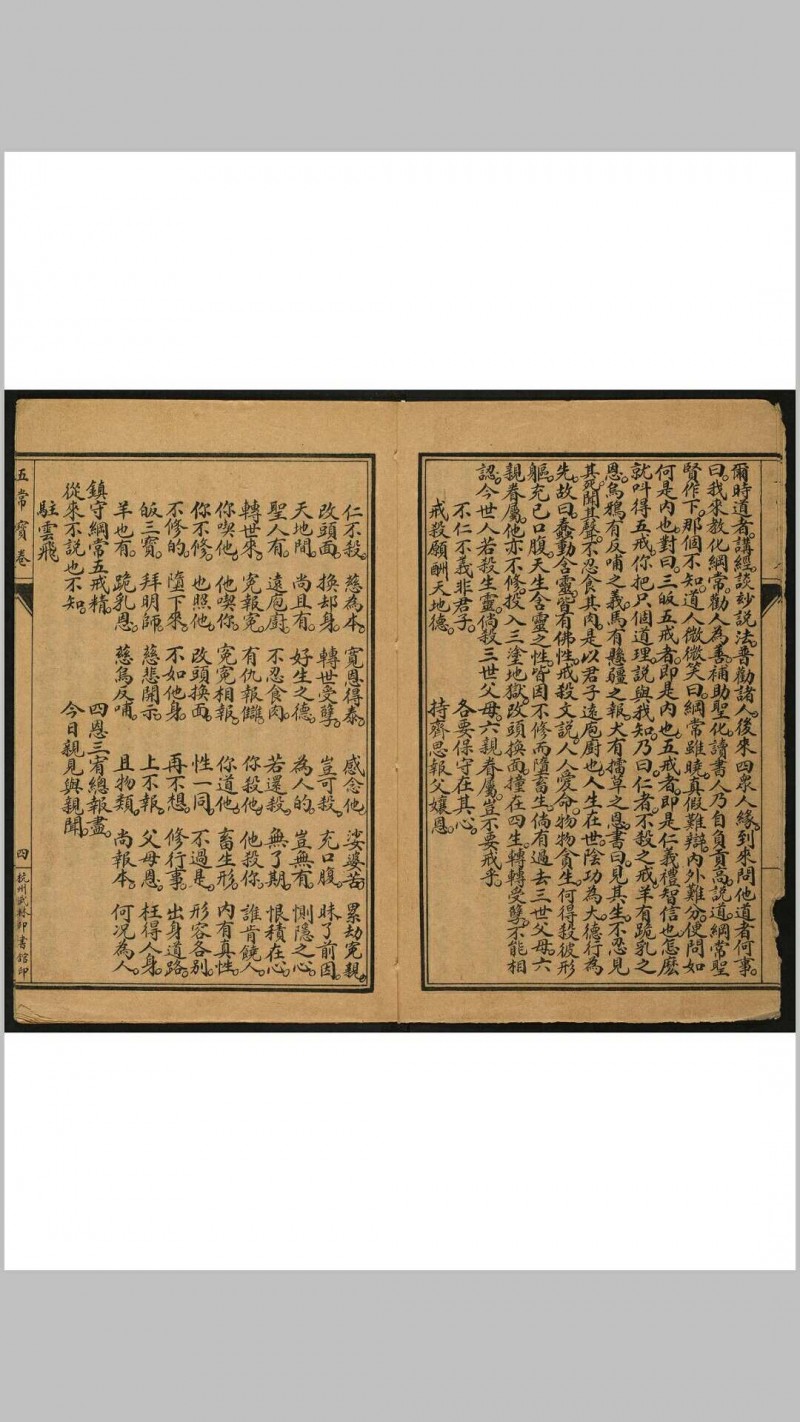 爾時道者。講經談妙說法。普勸諸人。後來四衆人緣。到來問他道者何事。
曰。我來教化綱常。勸人為善。補助聖化。讀書人乃自負貢高。說道綱常聖
賢作下。那個不知。道人微微笑曰。綱常雖曉。真假難辯。內外難分。便問如
何是內也。對曰。三皈五戒者。即是內也。五戒者。即是仁義禮智信也。怎麽
就呌得五戒。你把只個道理。說與我知。乃曰。仁者不殺之戒。羊有跪乳之
恩。烏鴉有反哺之義。馬有懸疆之報。犬有擂草之恩。書曰。見其生。不忍見
其死。聞其聲。不忍食其肉。是以君子遠庖厨也。人生在世。陰功為大。德行為
先。故曰。蠢動含靈。皆有佛性。戒殺文說。人人愛命。物物貪生。何得殺彼形
軀。充己口腹。天生含靈之性。皆因不修而墮畜生。倘有過去三世父母。六
親眷屬。他亦不修。投入三塗地獄。改頭換面。撞在四生。轉轉受孽。不能相
認。今世人若殺生靈。倘殺三世父母。六親眷屬。豈不要戒乎。
不仁不義非君子。　各要保守在其心。
戒殺願酬天地德。　持齊思報父孃恩。
仁不殺。慈為本。寬恩得泰。感念他。娑婆苦。累劫寃親。
改頭面。換却身。轉世受孽。豈可殺。充口腹。昧了前因。
天地間。尚且有。好生之德。為人的。豈無有。惻隱之心。
聖人有。遠庖厨。不忍食肉。若還殺。無了期。恨積在心。
轉世來。寃報寃。有仇報讎。你殺他。他殺你。誰肯饒人。
你喫他。他喫你。寃寃相報。你道他。畜生形。內有真性。
你不修。也照他。改頭換面。性一同。不過是。形容各別。
不修的。墮下來。不如他身。再不想。修行事。出身道路。
皈三寶。拜明師。慈悲開示。上不報。父母恩。枉得人身。
羊也有。跪乳恩。慈烏反哺。且物類。尚報本。何况為人。
鎮守綱常五戒精。　四恩三宥總報盡。
從來不說也不知。　今日親見與親聞。
駐雲飛
五常寶卷
四
杭州武林印書館印